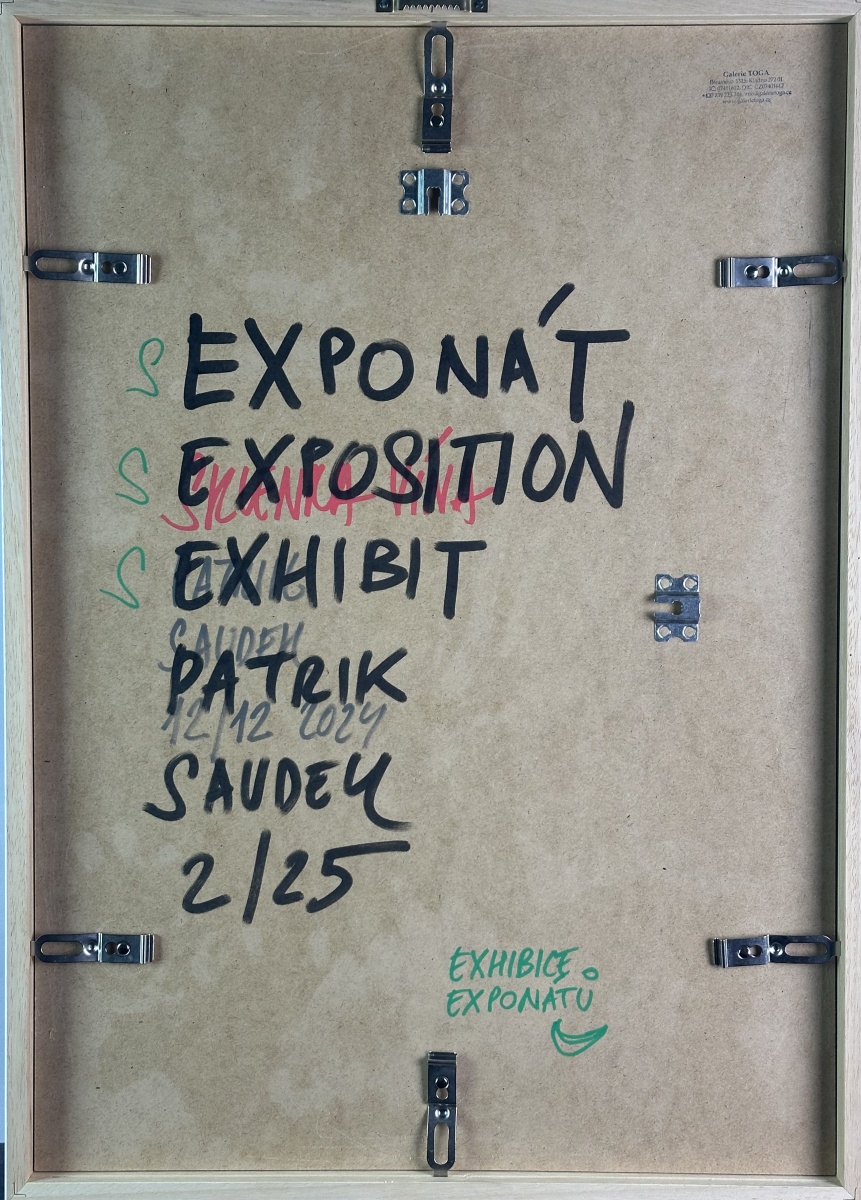 Galerie TOGA
www.galerietoga.cz
EXPONÁT
EXPOSITION
SKLENKA VÍNA
EXHIBIT
PATRIK
SAUDEK
PATRIK
12/12 2024
SAUDEK
2/25
EXHIBICE
EXPONÁTŮ